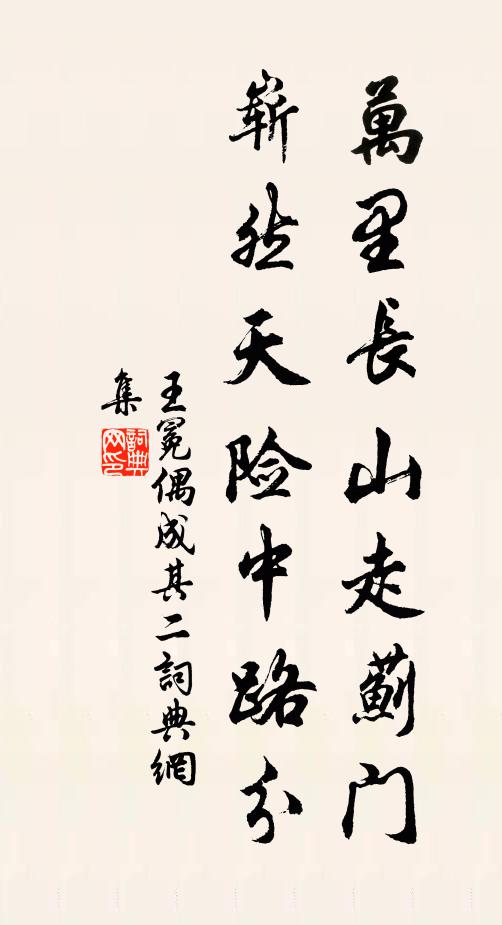 萬里長山走薊门
崭然天险中路分
王冕偶成其二詞典網
集
詞典
网印